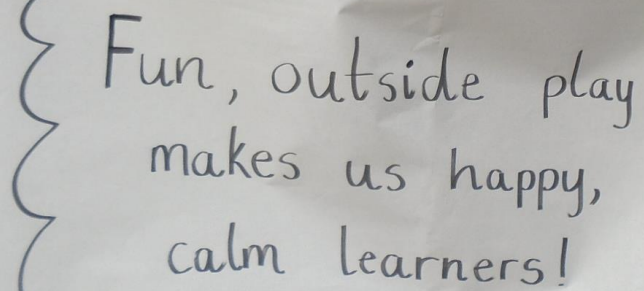 Fun, outside play
makes us happy,
calm learners!